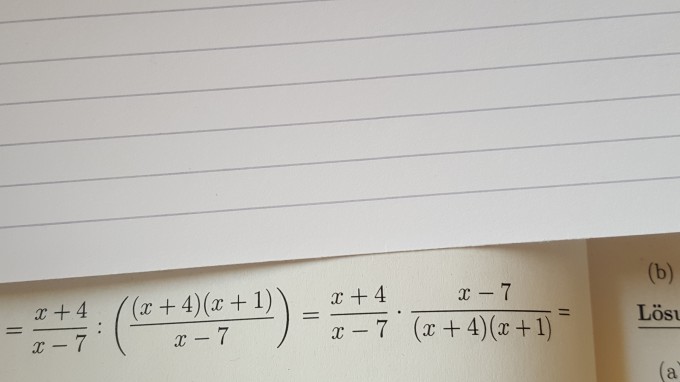 = \frac{x+4}{x-7} : \left( \frac{(x+4)(x+1)}{x-7} \right) = \frac{x+4}{x-7} \cdot \frac{x-7}{(x+4)(x+1)} =
(b)
(a